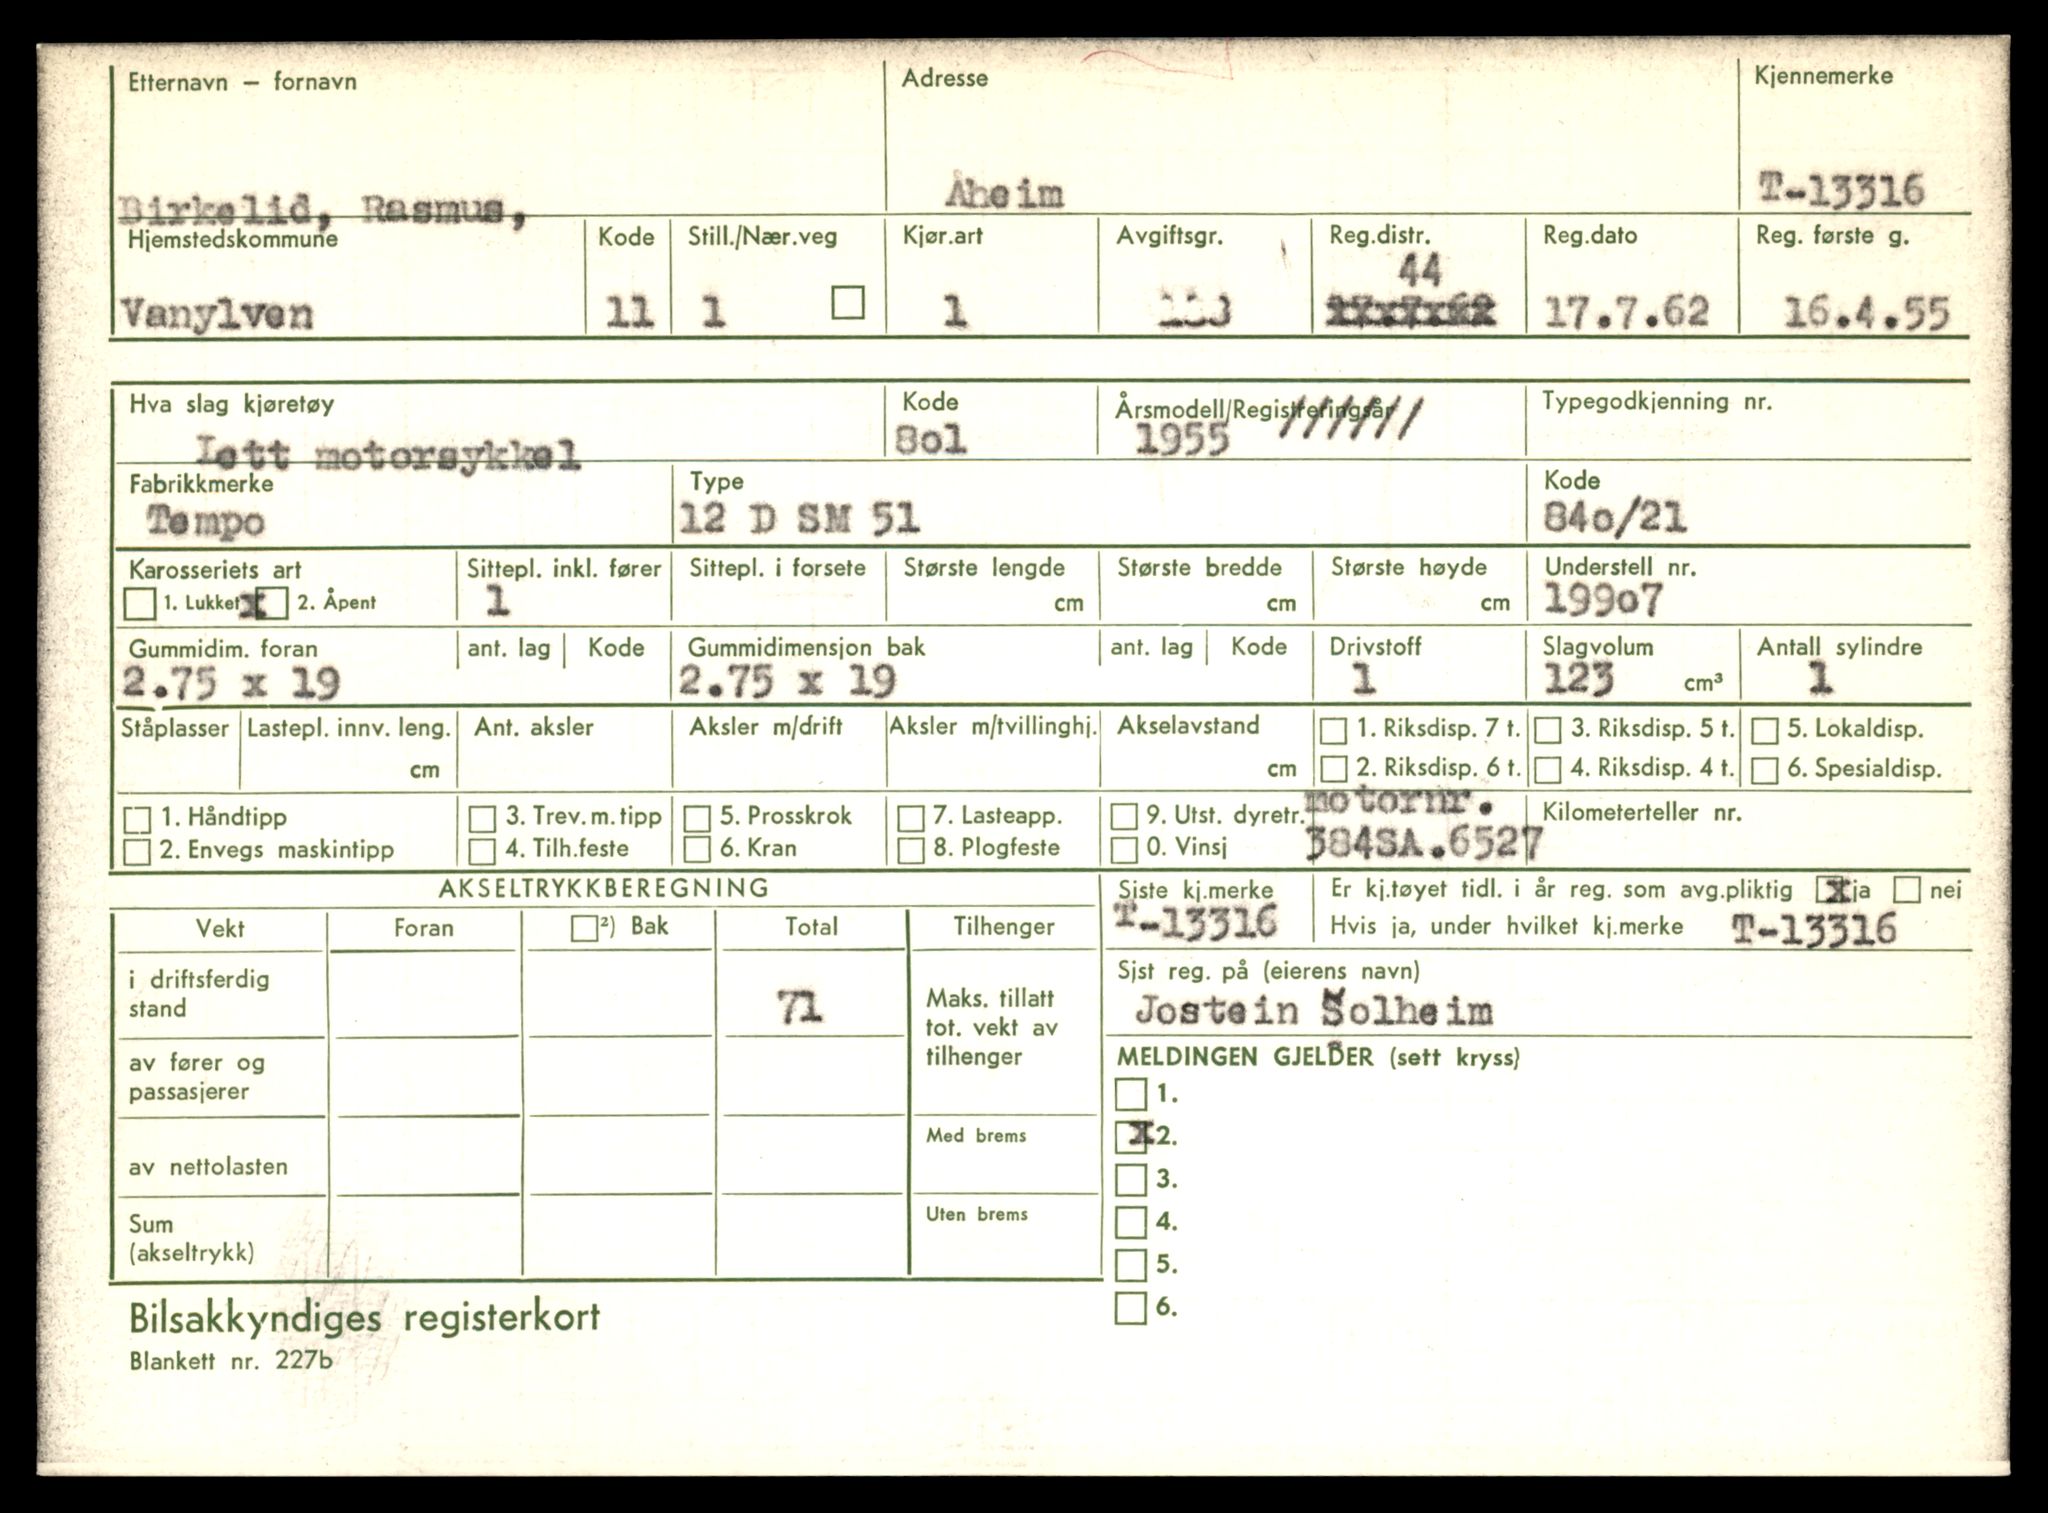 Etternavn – fornavn Adresse Kjennemerke
Birkelid, Rasmus, Åheim T-13316
Hjemstedskommune Kode Still./Nær.veg Kjør.art Avgiftsgr. Reg.distr. Reg.dato Reg. første g.
44
Vanylven 11 1 1 17.7.62 17.7.62 16.4.55
Hva slag kjøretøy Kode Årsmodell/Registreringsår Typegodkjenning nr.
Lett motorsykkel 8o1 1955 //////
Fabrikkmerke Type Kode
Tempo 12 D SM 51 84o/21
Karosseriets art Sittepl. inkl. fører Sittepl. i forsete Største lengde Største bredde Største høyde Understell nr.
1. Lukket x 2. Åpent 1 cm cm cm 199o7
Gummidim. foran ant. lag Kode Gummidimensjon bak ant. lag Kode Drivstoff Slagvolum Antall sylindre
2.75 x 19 2.75 x 19 1 123 cm³ 1
Ståplasser Lastepl. innv. leng. Ant. aksler Aksler m/drift Aksler m/tvillinghj. Akselavstand 1. Riksdisp. 7 t. 3. Riksdisp. 5 t. 5. Lokaldisp.
cm cm 2. Riksdisp. 6 t. 4. Riksdisp. 4 t. 6. Spesialdisp.
1. Håndtipp 3. Trev. m. tipp 5. Prosskrok 7. Lasteapp. 9. Utst. dyretr. motornr. Kilometerteller nr.
2. Envegs maskintipp 4. Tilh.feste 6. Kran 8. Plogfeste 0. Vinsj 384SA.6527
AKSELTRYKKBEREGNING Siste kj.merke Er kj.tøyet tidl. i år reg. som avg.pliktig x ja nei
Vekt Foran ²) Bak Total Tilhenger T-13316 Hvis ja, under hvilket kj.merke T-13316
i driftsferdig stand 71 Maks. tillatt tot. vekt av tilhenger
Sist reg. på (eierens navn)
Jostein Solheim
av fører og passasjerer
MELDINGEN GJELDER (sett kryss)
1.
Med brems x 2.
av nettolasten 3.
Uten brems 4.
Sum (akseltrykk) 5.
6.
Bilsakkyndiges registerkort
Blankett nr. 227b